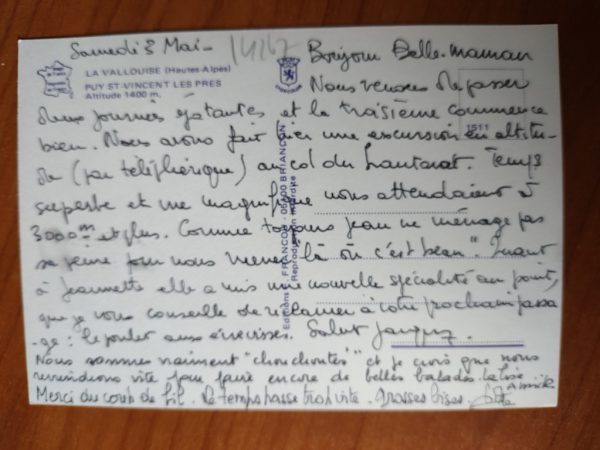 Samedi 3 Mai -
14167
LA VALLOUISE (Hautes-Alpes)
PUY ST-VINCENT LES PRES
Altitude 1400 m.
Editions FRANCOU - 05100 BRIANCON
Reproduction interdite
1511
Bonjour Belle-maman
Nous venons de passer
deux journées épatantes et la troisième commence
bien. Nous avons fait hier une excursion en altitu-
de (par téléphérique) au col du Lautaret. Temps
superbe et vue magnifique nous attendaient à
3000m et plus. Comme toujours Jean ne ménage pas
sa peine pour nous mener "là où c'est beau". Quant
à Jeannette elle a mis une nouvelle spécialité au point,
que je vous conseille de réclamer à votre prochain passa
-ge : le poulet aux écrevisses. Salut Jacques.
Nous sommes vraiment "chouchoutés" et je crois que nous
reviendrons vite pour faire encore de belles balades. La bise
Annick
Merci du coup de fil. Le temps passe trop vite. Grosses bises.